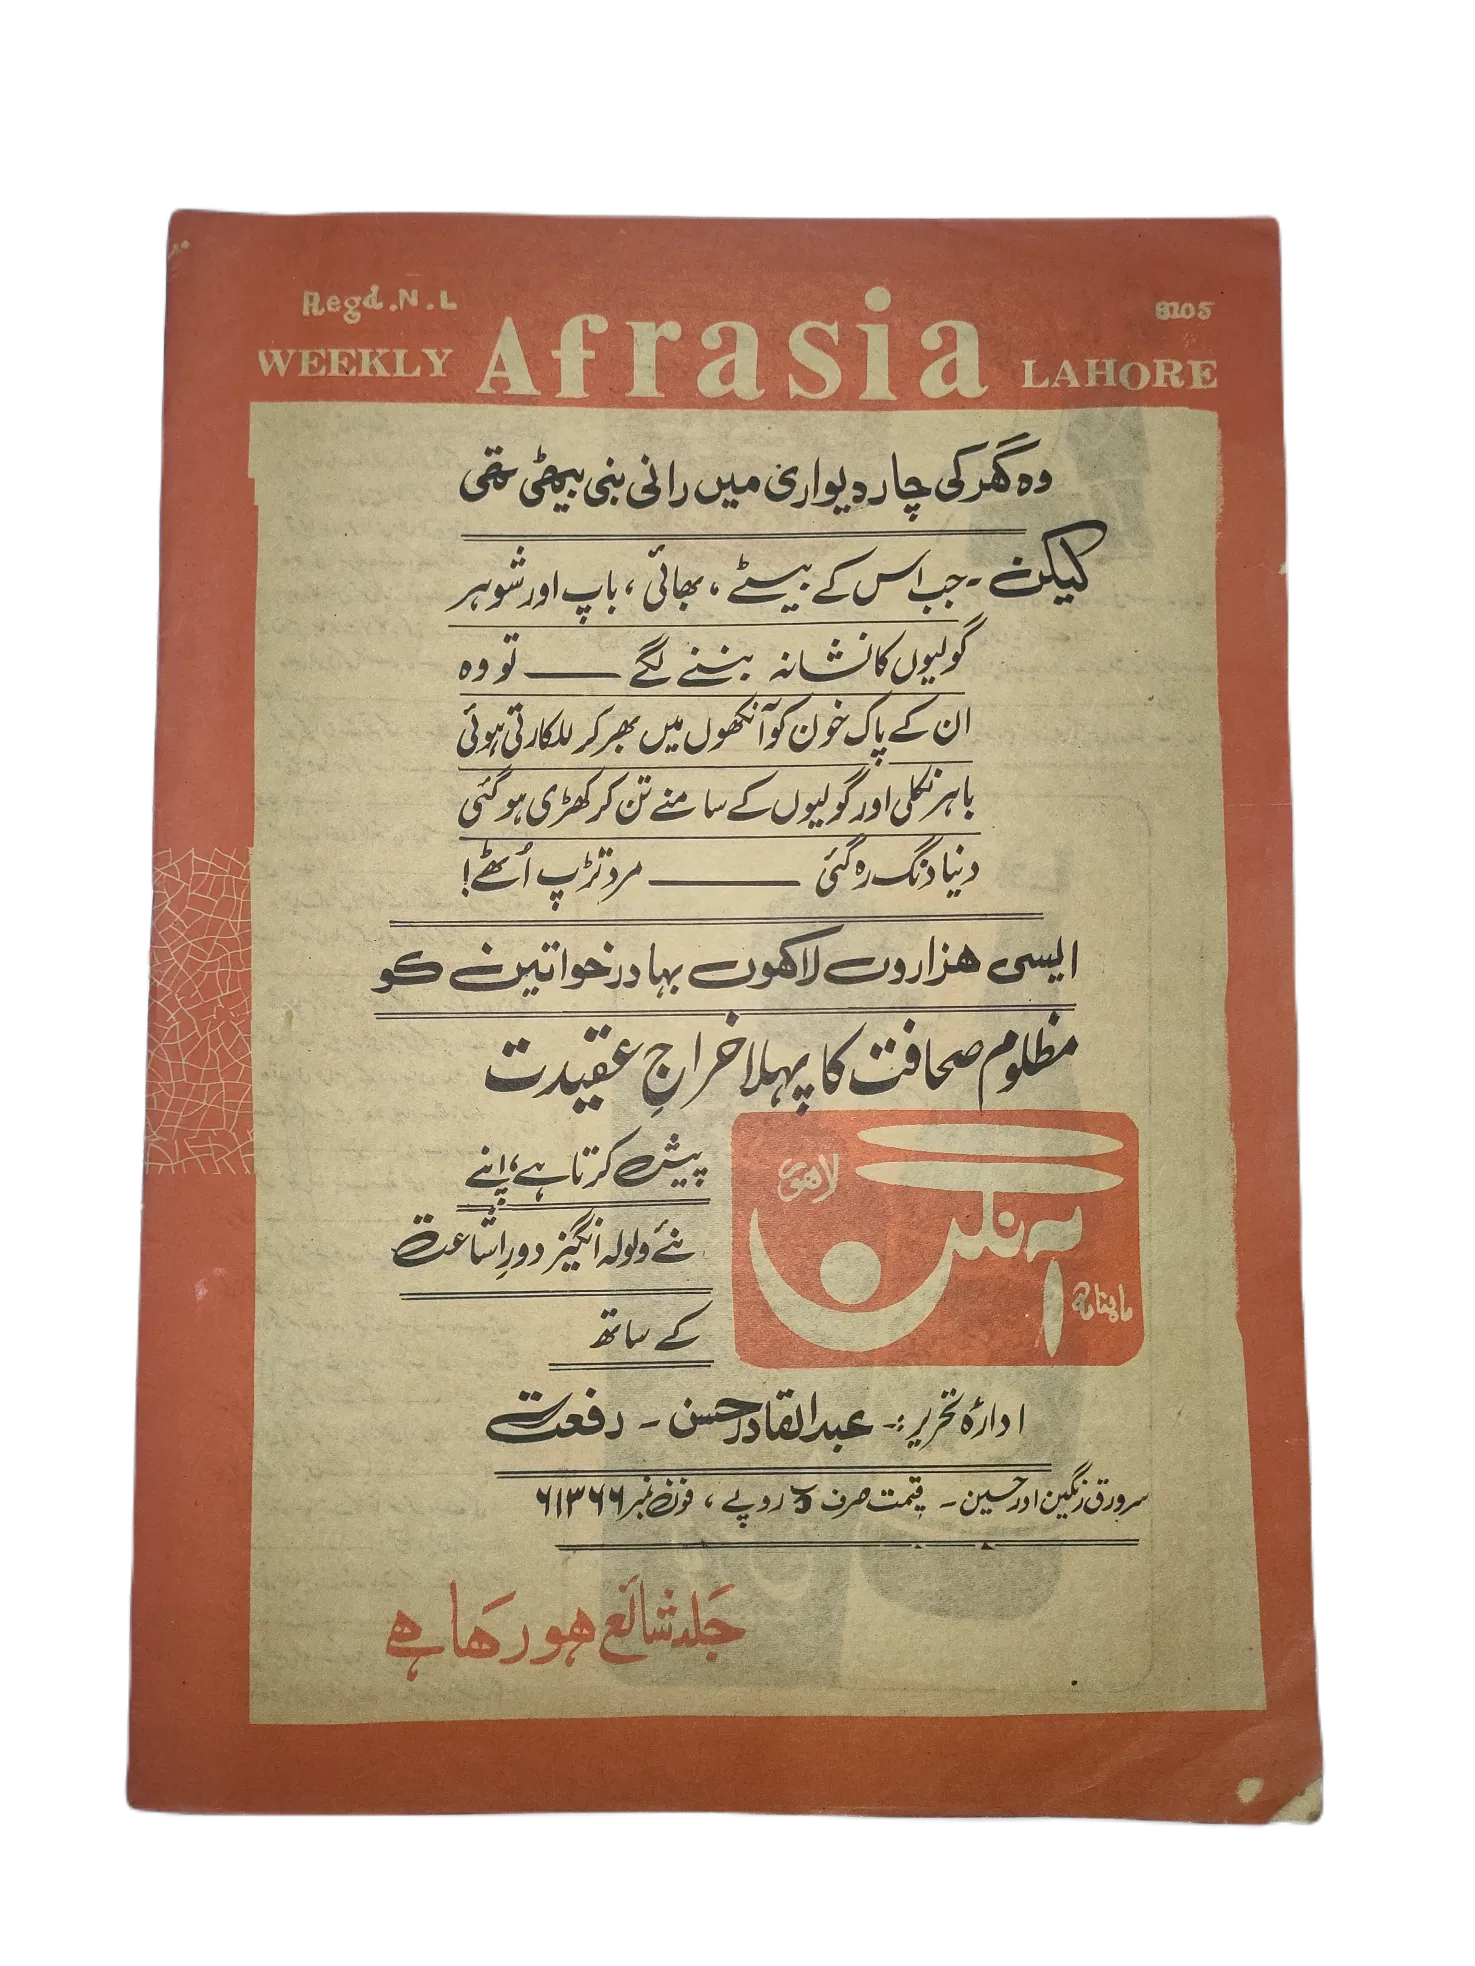 Regd.N.L 8105
WEEKLY Afrasia LAHORE
وہ گھر کی چار دیواری میں رانی بنی بیٹھی تھی
لیکن - جب اس کے بیٹے ، بھائی ، باپ اور شوہر
گولیوں کا نشانہ بننے لگے —— تو وہ
ان کے پاک خون کو آنکھوں میں بھر کر للکارتی ہوئی
باہر نکلی اور گولیوں کے سامنے تن کر کھڑی ہو گئی
دنیا دنگ رہ گئی —— مرد تڑپ اُٹھے!
ایسی ہزاروں لاکھوں بہادر خواتین کو
مظلوم صحافت کا پہلا خراجِ عقیدت
ماہنامہ آہنگن لاہور
پیش کرتا ہے، اپنے
نئے ولولہ انگیز دورِ اشاعت
کے ساتھ
ادارہ تحریر :- عبدالقادر حسن - رفعت
سرورق رنگین اور حسین - قیمت صرف ۵ روپے ، فون نمبر ۶۱۳۶۶
جلد شائع ہو رہا ہے